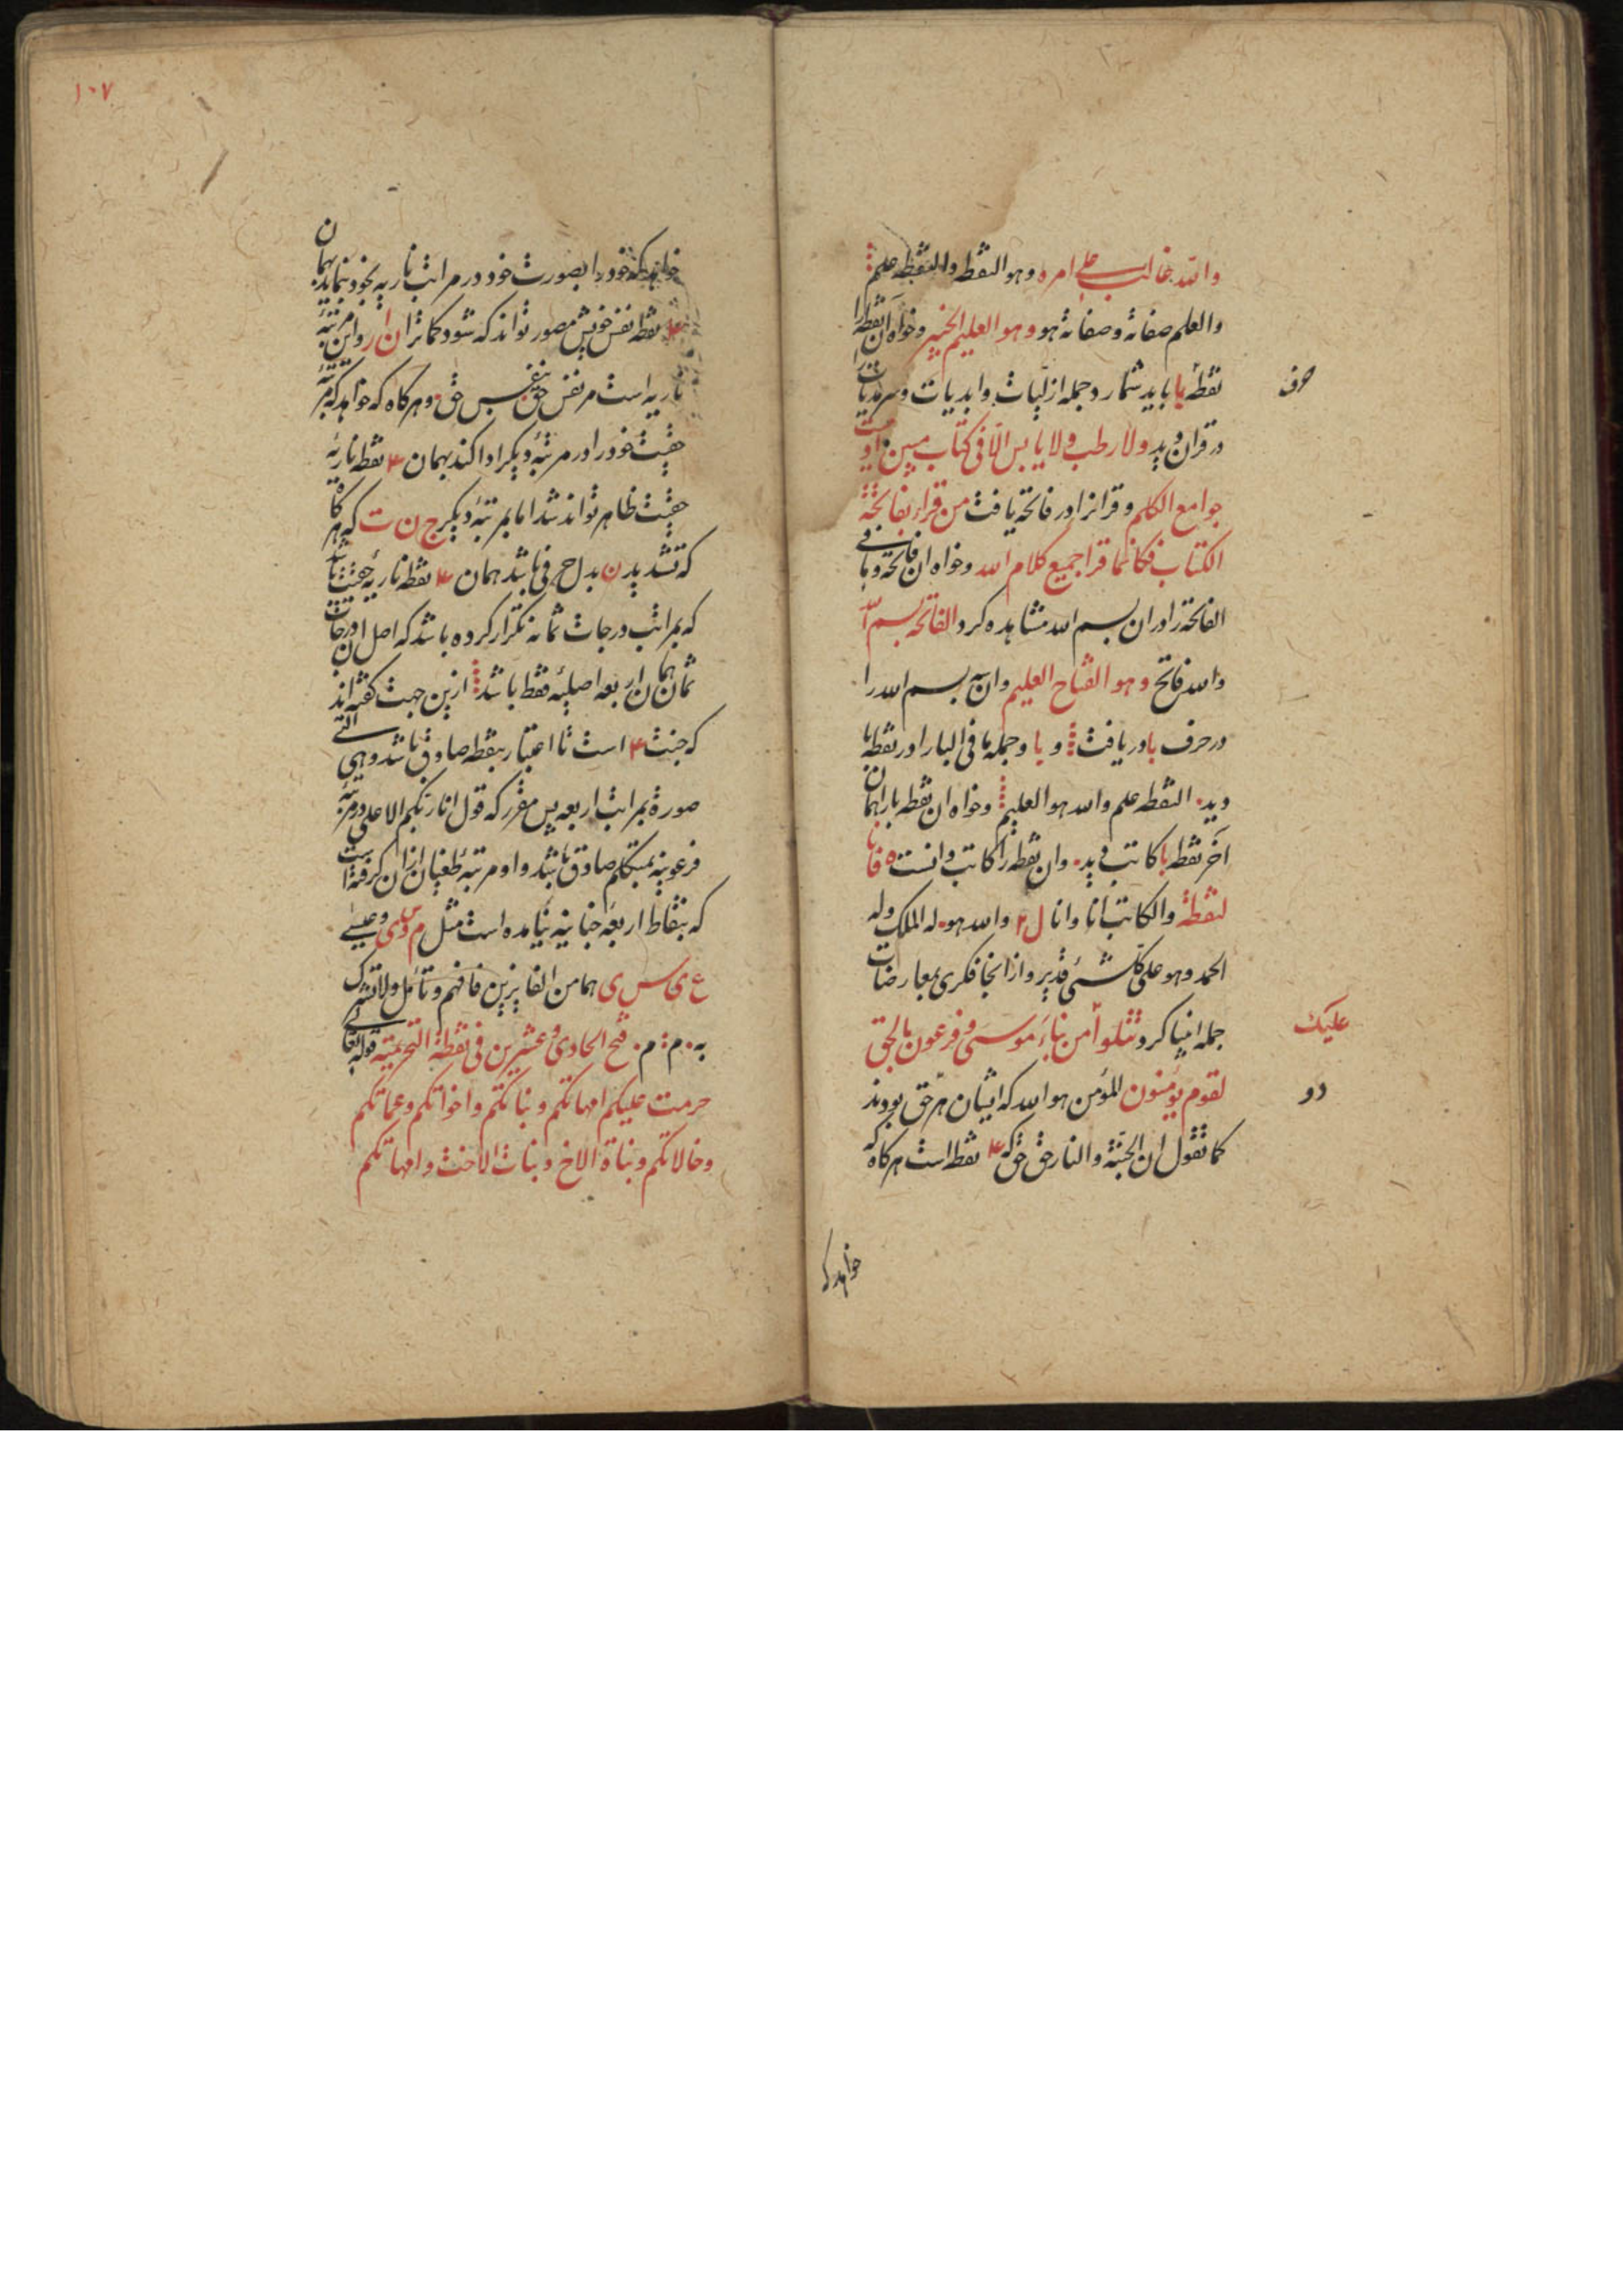 والله غالب علی امره وهو النقطه والنقطه علم
والعلم صفاته وصفاته هو وهو العلیم الخبیر وخواه ان نقطه را
نقطهٔ با باید شمارد جمله ازلیات وابدیات وسرمدیات را
حرف
در قران دید ولا رطب ولا یابس الا فی کتاب مبین اوتیت
جوامع الکلم وقرانرا در فاتحه یافت من قراء بفاتحة
الکتاب فکانما قرا جمیع کلام الله وخواه ان فاتحه وما فی
الفاتحة را در ان بسم الله مشاهده کرد الفاتحه بسم الله
والله فاتح وهو الفتاح العلیم وان بسم الله را
در حرف با دریافت و با وجمله ما فی البا را در نقطه با
دید النقطه علم والله هو العلیم وخواه ان نقطه با را همان
آخر نقطه با کاتب دید وان نقطه را کاتب دانست فانا
لنقطة والکاتب انا وانا ل ۲ والله هو له الملک وله
الحمد وهو علی کل شئ قدیر واز انجا فکری بمعارضات
جمله انبیا کرد نتلوا من نباء موسی وفرعون بالحق
علیک
لقوم یؤمنون المؤمن هو الله که ایشان هر حق بودند
دو
کما نقول ان الجنة والنار حق حق که ۴ نقطه است هرکاه که
خواهد که
۱۰۷
خواهد که خود را بصورت خود در مراتب ناریه بخود نماید بهمان
۴ نقطه نفس خویش مصور تواند که شود کما ترا ن ا ر واین مرتبهٔ
ناریه است مر نفس حق بنفس حق وهرکاه که خواهد که مرتبهٔ
حقیت خود را در مرتبهٔ دیکر ادا کند بهمان ۴ نقطه ناریهٔ
حقیت ظاهر تواند شد اما بمرتبهٔ دیکر ج ن ت که هرکاه
که تشدید ن بدل حرفی باشد همان ۴ نقطه ناریهٔ حقیت باشد
که بمراتب درجات ثمانه تکرار کرده باشد که اصل ان درجات
ثمان همان اربعه اصلیهٔ نقط باشد ازین جهت کفته اند
که جنت ۴ است تا اعتبار بنقطه صادق باشد وهی التی
صورة بمراتب اربعه پس مقرر که قول انا ربکم الاعلی در مرتبهٔ
فرعونیه بمتکلم صادق باشد واو مرتبهٔ طغیان ازان کرفته است
که بنقاط اربعهٔ جنانیه نیامده است مثل م وس ی وعیسی
ع ی س ی هما من الفایزین فافهم وتامل ولا تشرک
به م م فتح الحادی وعشرین فی نقطة التحریمیة قوله تعالی
حرمت علیکم امهاتکم وبناتکم واخواتکم وعماتکم
وخالاتکم وبناة الاخ وبنات الاخت وامهاتکم